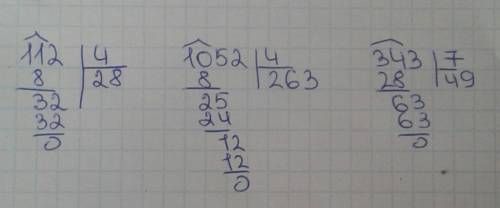 112 4 1052 4 343 7
8 28 8 263 28 49
32 25 63
32 24 63
0 12 0
12
0